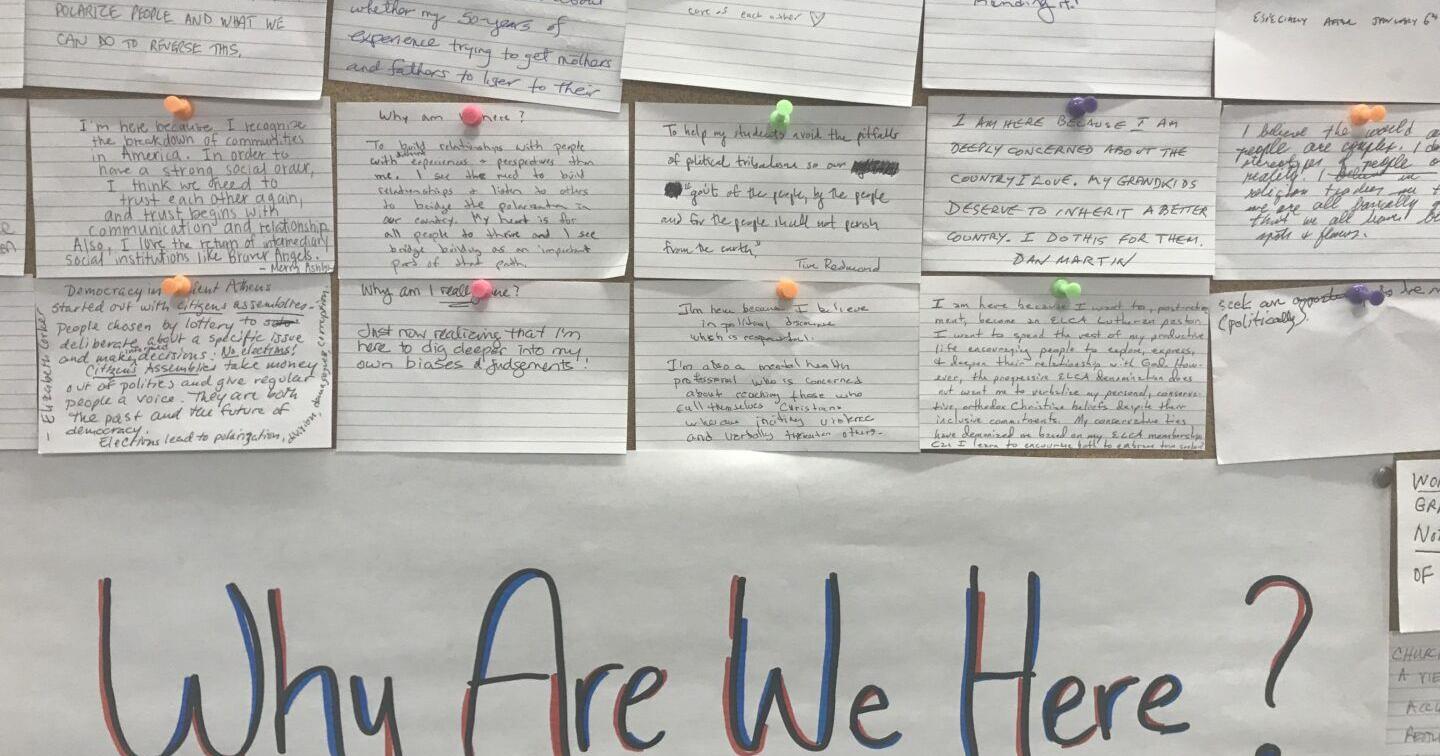 POLARIZE PEOPLE AND WHAT WE
CAN DO TO REVERSE THIS.
whether my 50-years of
experience trying to get mothers
and fathers to
to their
care of each other ♡
ESPECIALLY AFTER JANUARY 6th
I'm here because I recognize
the breakdown of communities
in America. In order to
have a strong social order,
I think we need to
trust each other again,
and trust begins with
communication and relationship
Also, I love the return of intermediary
social institutions like Braver Angels.
- Merry
Why am here?
To build relationships with people
with different experiences + perspectives than
me. I see the need to build
relationships & listen to others
to bridge the polarization in
our country. My heart is for
all people to thrive and I see
bridge building as an important
part of that path.
To help my students avoid the pitfalls
of political tribalism so our
"gov't of the people, by the people
and for the people shall not perish
from the earth"
Tim Redmond
I AM HERE BECAUSE I AM
DEEPLY CONCERNED ABOUT THE
COUNTRY I LOVE. MY GRANDKIDS
DESERVE TO INHERIT A BETTER
COUNTRY. I DO THIS FOR THEM.
DAN MARTIN
I believe the world
people are complex. I
stereotypes of people
reality. I
religion
we are all
that we all
spots & flaws.
Democracy in Athens
started out with citizens assemblies-
People chosen by lottery to
deliberate about a specific issue
and make informed decisions. No elections!
Citizens Assemblies take money
out of politics and give regular
people a voice. They are both
the past and the future of
democracy.
Elections lead to polarization, division, demagogues, corruption.
- Elizabeth
Why am I really
Just now realizing that I'm
here to dig deeper into my
own biases & judgements!
I'm here because I believe
in political
which is respectful.
I'm also a mental health
professional who is concerned
about reaching those who
call themselves Christians
who are inciting violence
and verbally threaten others.
I am here because I want to, post-retire
ment, become an ELCA Lutheran pastor.
I want to spend the rest of my productive
life encouraging people to explore, express,
& deepen their relationship with God. How-
ever, the progressive ELCA denomination does
not want me to verbalize my personal, conserva-
tive, orthodox Christian beliefs despite their
inclusive commitments. My conservative ties
have demonized me based on my ELCA membership.
Can I learn to encourage both to embrace
seek an
(politically)
Why Are We Here?
OF